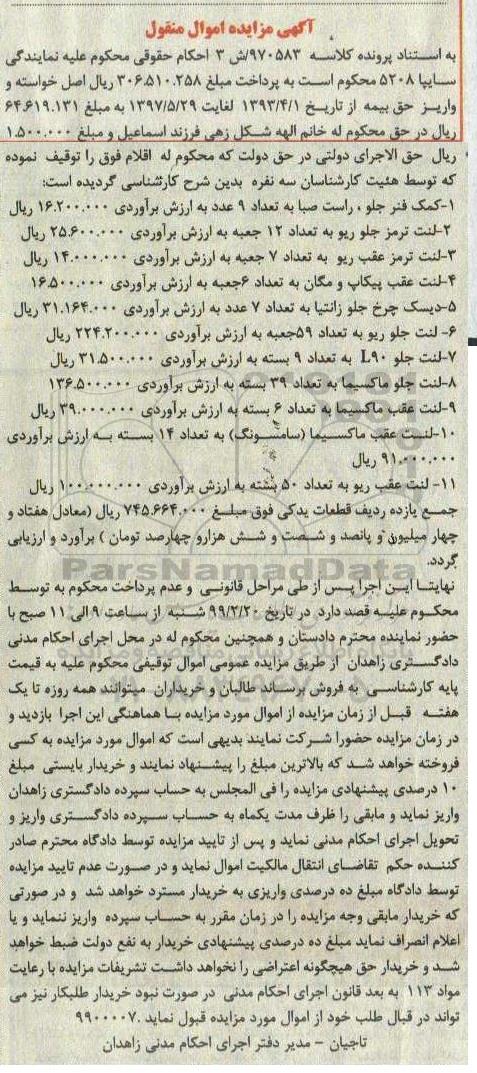 آگهی مزایده اموال منقول
به استناد پرونده کلاسه ۹۷۰۵۸۳/ش ۳ احکام حقوقی محکوم علیه نمایندگی
سایپا ۵۲۰۸ محکوم است به پرداخت مبلغ ۳۰۶.۵۱۰.۲۵۸ ریال اصل خواسته و
واریز حق بیمه از تاریخ ۱۳۹۳/۴/۱ لغایت ۱۳۹۷/۵/۲۹ به مبلغ ۶۴.۶۱۹.۱۳۱
ریال در حق محکوم له خانم الهه شکل زهی فرزند اسماعیل و مبلغ ۱.۵۰۰.۰۰۰
ریال حق الاجرای دولتی در حق دولت که محکوم له اقلام فوق را توقیف نموده
که توسط هئیت کارشناسان سه نفره بدین شرح کارشناسی گردیده است:
۱-کمک فنر جلو ، راست صبا به تعداد ۹ عدد به ارزش برآوردی ۱۶.۲۰۰.۰۰۰ ریال
۲-لنت ترمز جلو ریو به تعداد ۱۲ جعبه به ارزش برآوردی ۲۵.۶۰۰.۰۰۰ ریال
۳-لنت ترمز عقب ریو به تعداد ۷ جعبه به ارزش برآوردی ۱۴.۰۰۰.۰۰۰ ریال
۴-لنت عقب پیکاپ و مگان به تعداد ۶جعبه به ارزش برآوردی ۱۶.۵۰۰.۰۰۰
۵-دیسک چرخ جلو زانتیا به تعداد ۷ عدد به ارزش برآوردی ۳۱.۱۶۴.۰۰۰ ریال
۶- لنت جلو ریو به تعداد ۵۹جعبه به ارزش برآوردی ۲۲۴.۲۰۰.۰۰۰ ریال
۷-لنت جلو L۹۰ به تعداد ۹ بسته به ارزش برآوردی ۳۱.۵۰۰.۰۰۰ ریال
۸-لنت جلو ماکسیما به تعداد ۳۹ بسته به ارزش برآوردی ۱۳۶.۵۰۰.۰۰۰
۹-لنت عقب ماکسیما به تعداد ۶ بسته به ارزش برآوردی ۳۹.۰۰۰.۰۰۰ ریال
۱۰-لنت عقب ماکسیما (سامسونگ) به تعداد ۱۴ بسته به ارزش برآوردی
۹۱.۰۰۰.۰۰۰ ریال
۱۱- لنت عقب ریو به تعداد ۵۰ بسته به ارزش برآوردی ۱۰۰.۰۰۰.۰۰۰ ریال
جمع یازده ردیف قطعات یدکی فوق مبلغ ۷۴۵.۶۶۴.۰۰۰ ریال (معادل هفتاد و
چهار میلیون و پانصد و شصت و شش هزارو چهارصد تومان ) برآورد و ارزیابی
گردد.
ParsNamadData
نهایتا این اجرا پس از طی مراحل قانونی و عدم پرداخت محکوم به توسط
محکوم علیه قصد دارد در تاریخ ۹۹/۲/۲۰ شنبه از ساعت ۹ الی ۱۱ صبح با
حضور نماینده محترم دادستان و همچنین محکوم له در محل اجرای احکام مدنی
دادگستری زاهدان از طریق مزایده عمومی اموال توقیفی محکوم علیه به قیمت
پایه کارشناسی به فروش برساند طالبان و خریداران میتوانند همه روزه تا یک
هفته قبل از زمان مزایده از اموال مورد مزایده با هماهنگی این اجرا بازدید و
در زمان مزایده حضورا شرکت نمایند بدیهی است که اموال مورد مزایده به کسی
فروخته خواهد شد که بالاترین مبلغ را پیشنهاد نمایند و خریدار بایستی مبلغ
۱۰ درصدی پیشنهادی مزایده را فی المجلس به حساب سپرده دادگستری زاهدان
واریز نماید و مابقی را ظرف مدت یکماه به حساب سپرده دادگستری واریز و
تحویل اجرای احکام مدنی نماید و پس از تایید مزایده توسط دادگاه محترم صادر
کننده حکم تقاضای انتقال مالکیت اموال نماید و در صورت عدم تایید مزایده
توسط دادگاه مبلغ ده درصدی واریزی به خریدار مسترد خواهد شد و در صورتی
که خریدار مابقی وجه مزایده را در زمان مقرر به حساب سپرده واریز ننماید و یا
اعلام انصراف نماید مبلغ ده درصدی پیشنهادی خریدار به نفع دولت ضبط خواهد
شد و خریدار حق هیچگونه اعتراضی را نخواهد داشت تشریفات مزایده با رعایت
مواد ۱۱۳ به بعد قانون اجرای احکام مدنی در صورت نبود خریدار طلبکار نیز می
تواند در قبال طلب خود از اموال مورد مزایده قبول نماید .۹۹۰۰۰۰۷
تاجیان - مدیر دفتر اجرای احکام مدنی زاهدان